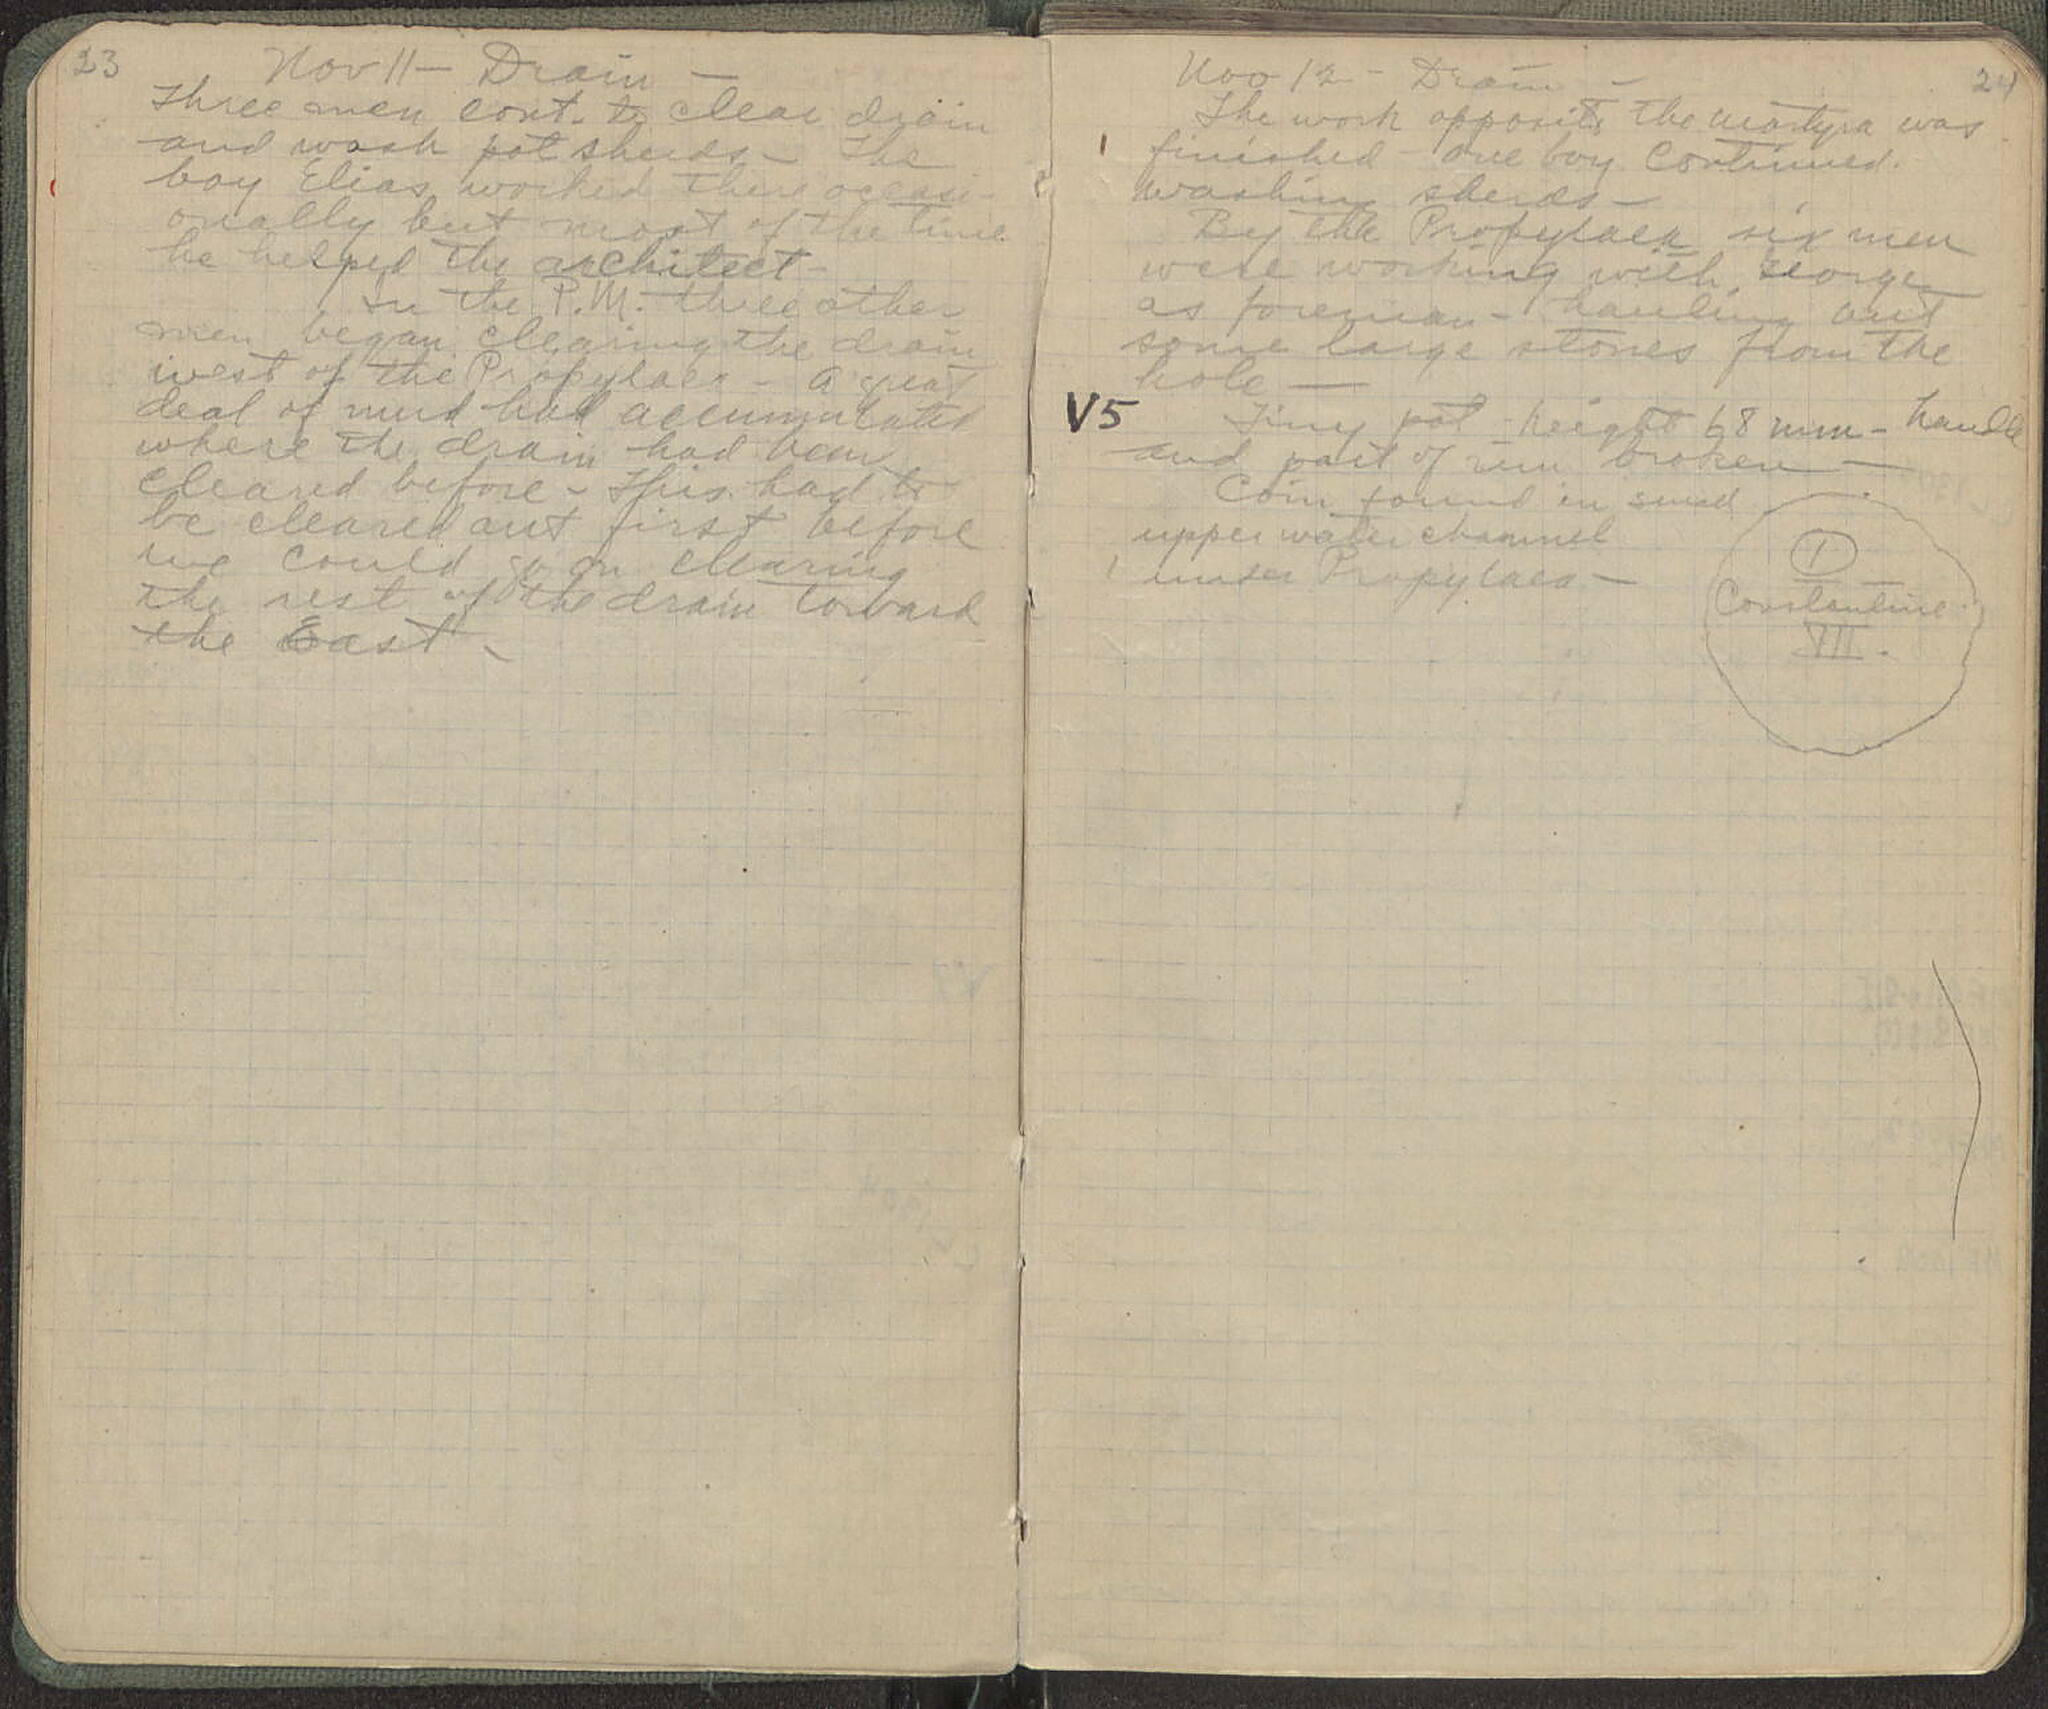 23
Nov 11 — Drain —
Three men cont. to clear drain
and wash potsherds — The
boy Elias worked there occasi-
onally but most of the time
he helped the architect —
In the P.M. three other
men began clearing the drain
west of the Propylaea — A great
deal of mud had accumulated
where the drain had been
cleared before — This had to
be cleared out first before
we could go on clearing
the rest of the drain toward
the East —
24
Nov 12 — Drain —
The work opposite the martyra was
finished — one boy continued
washing sherds —
By the Propylaea six men
were working with George
as foreman — hauling out
some large stones from the
hole —
V5
Tiny pot — height 68 mm — handle
and part of rim broken —
Coin found in small
upper water channel
under Propylaea —
1
Constantine
VII.